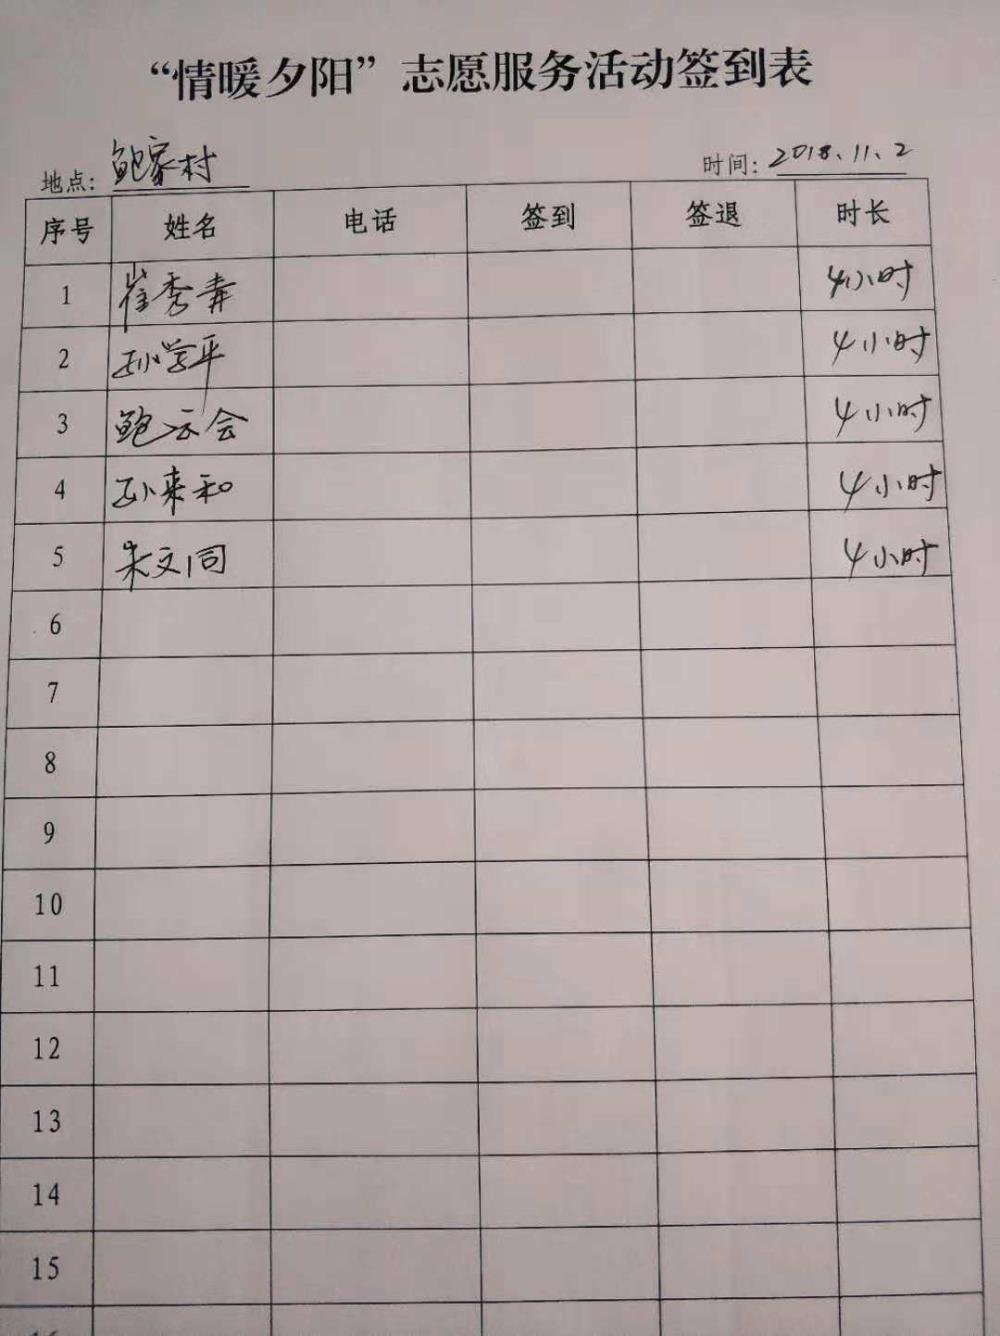 “情暖夕阳”志愿服务活动签到表
地点: 鲍家村 时间: 2018.11.2
序号 姓名 电话 签到 签退 时长
1 崔秀青 4小时
2 孙学平 4小时
3 鲍云会 4小时
4 孙来和 4小时
5 朱文同 4小时
6
7
8
9
10
11
12
13
14
15